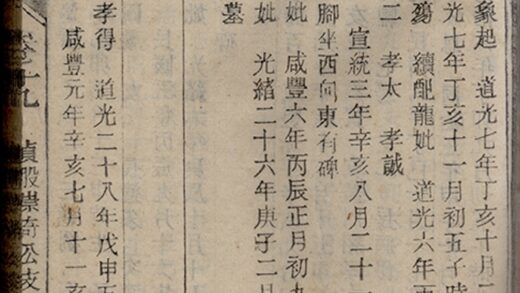 象起 道光七年丁亥十月二
光七年丁亥十一月初五子時
殤 續配龍妣 道光六年丙
二 孝太 孝誠
宣統三年辛亥八月二十一
腳坐西向東有碑
妣 咸豐六年丙辰正月初九
妣 光緒二十六年庚子二月
墓
孝得 道光二十八年戊申五
咸豐元年辛亥七月十一亥
卷十九 貞股崇奇公支